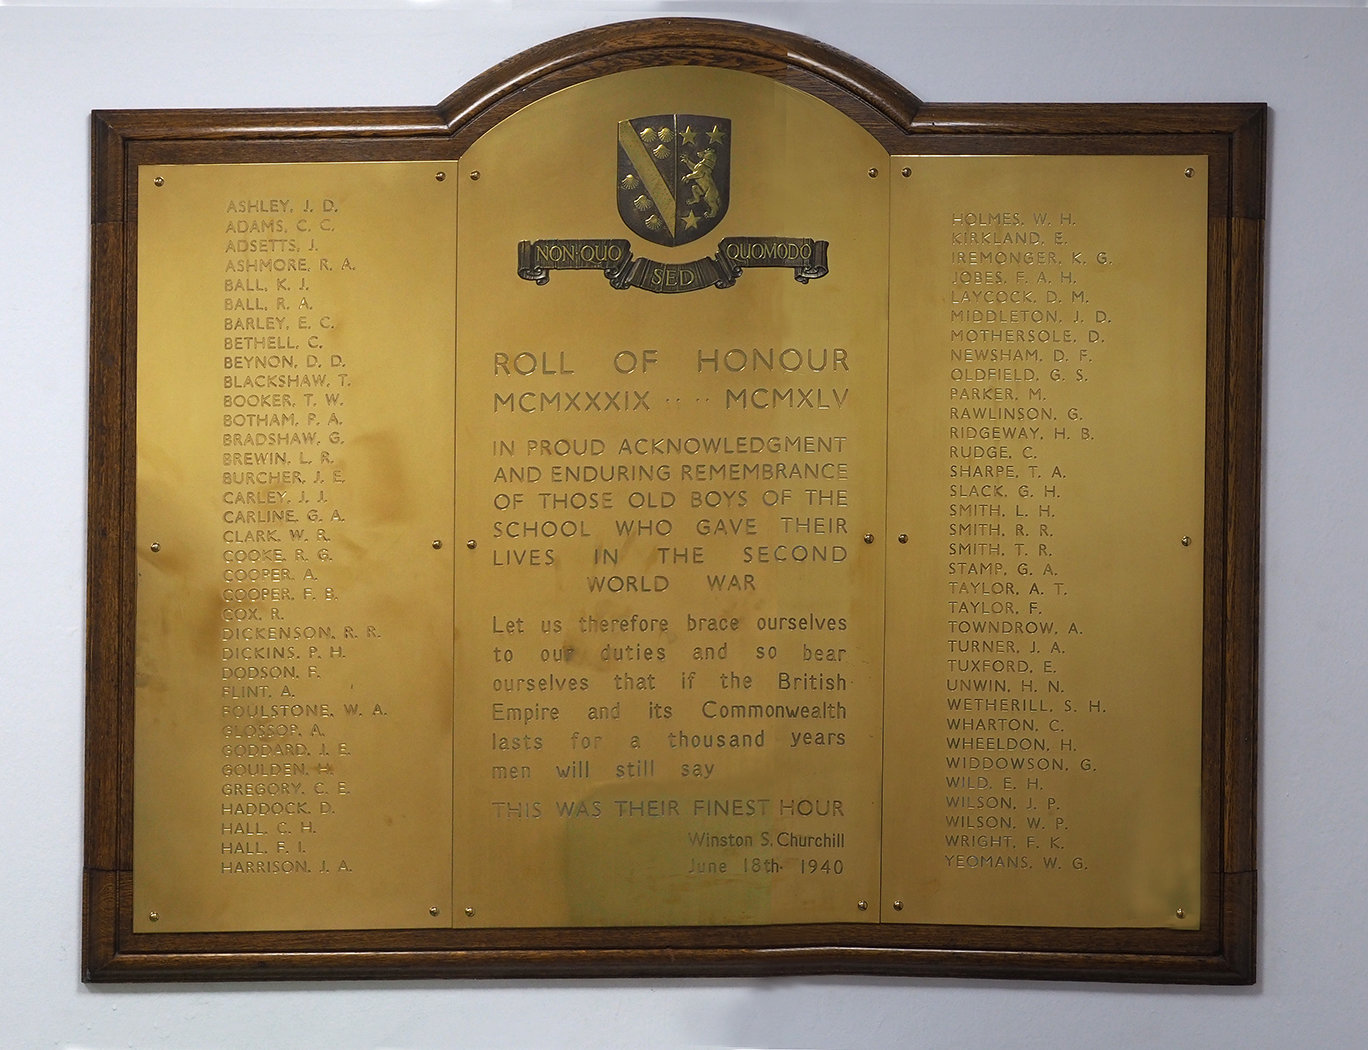 NON QUO SED QUOMODO
ASHLEY, J. D.
ADAMS, C. C.
ADSETTS, J.
ASHMORE, R. A.
BALL, K. J.
BALL, R. A.
BARLEY, E. C.
BETHELL, C.
BEYNON, D. D.
BLACKSHAW, T.
BOOKER, T. W.
BOTHAM, P. A.
BRADSHAW, G.
BREWIN, L. R.
BURCHER, J. E.
CARLEY, J. J.
CARLINE, G. A.
CLARK, W. R.
COOKE, R. G.
COOPER, A.
COOPER, F. B.
COX, R.
DICKENSON, R. R.
DICKINS, P. H.
DODSON, F.
FLINT, A.
FOULSTONE, W. A.
GLOSSOP, A.
GODDARD, J. E.
GOULDEN, H.
GREGORY, C. E.
HADDOCK, D.
HALL, C. H.
HALL, F. I.
HARRISON, J. A.
ROLL OF HONOUR
MCMXXXIX ·· ·· MCMXLV
IN PROUD ACKNOWLEDGMENT
AND ENDURING REMEMBRANCE
OF THOSE OLD BOYS OF THE
SCHOOL WHO GAVE THEIR
LIVES IN THE SECOND
WORLD WAR
Let us therefore brace ourselves
to our duties and so bear
ourselves that if the British
Empire and its Commonwealth
lasts for a thousand years
men will still say
THIS WAS THEIR FINEST HOUR
Winston S. Churchill
June 18th· 1940
HOLMES, W. H.
KIRKLAND, E.
IREMONGER, K. G.
JOBES, F. A. H.
LAYCOCK, D. M.
MIDDLETON, J. D.
MOTHERSOLE, D.
NEWSHAM, D. F.
OLDFIELD, G. S.
PARKER, M.
RAWLINSON, G.
RIDGEWAY, H. B.
RUDGE, C.
SHARPE, T. A.
SLACK, G. H.
SMITH, L. H.
SMITH, R. R.
SMITH, T. R.
STAMP, G. A.
TAYLOR, A. T.
TAYLOR, F.
TOWNDROW, A.
TURNER, J. A.
TUXFORD, E.
UNWIN, H. N.
WETHERILL, S. H.
WHARTON, C.
WHEELDON, H.
WIDDOWSON, G.
WILD, E. H.
WILSON, J. P.
WILSON, W. P.
WRIGHT, F. K.
YEOMANS, W. G.